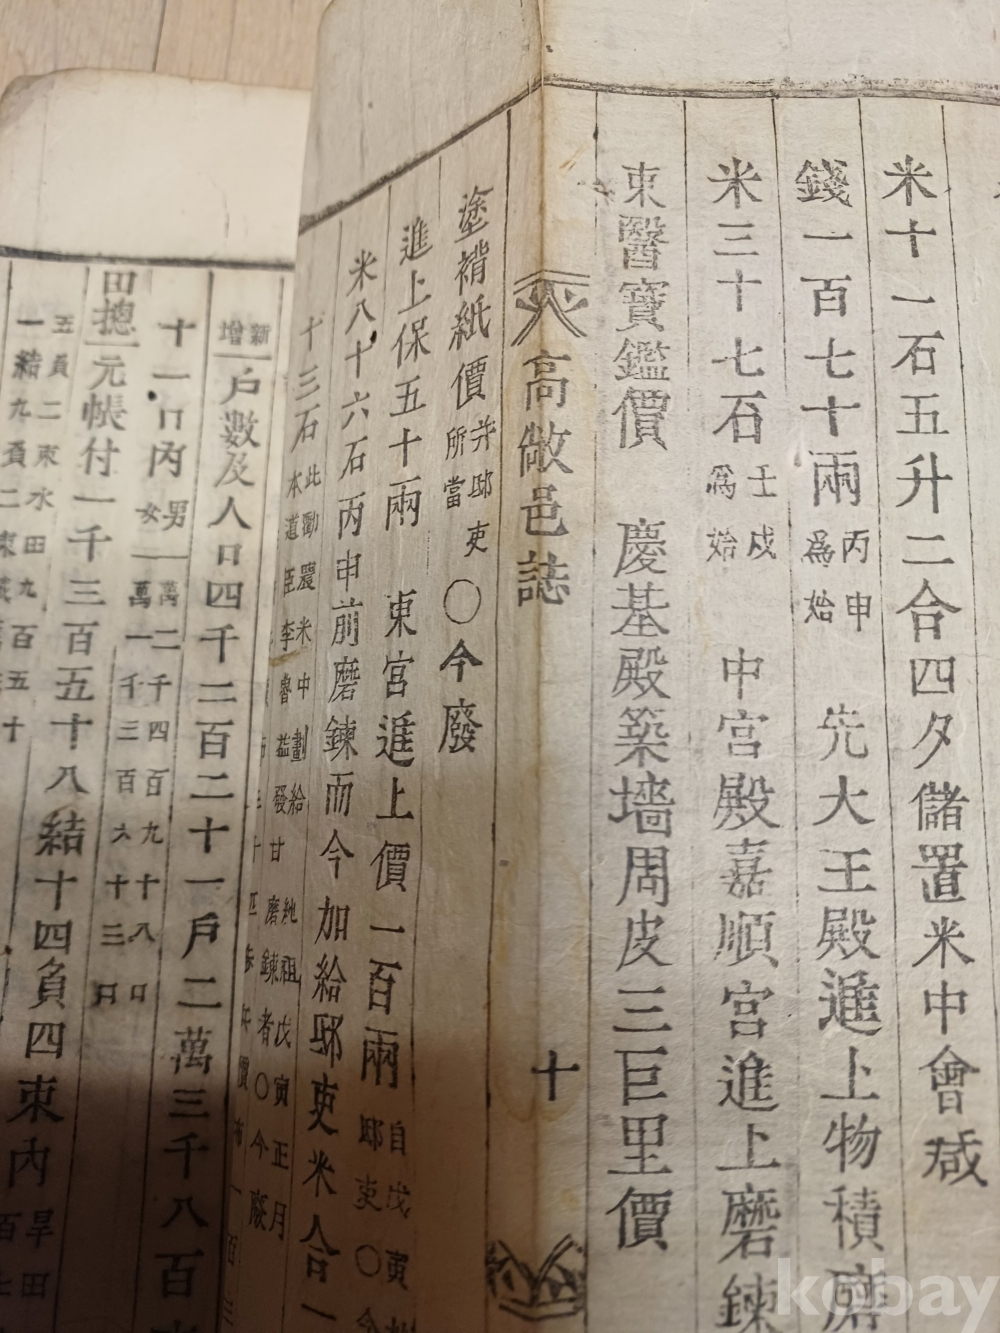 米十一石五升二合四夕儲置米中會減
錢一百七十兩丙申爲始 先大王殿進上物積磨
米三十七石壬戌爲始 中宮殿嘉順宮進上磨鍊
東醫寶鑑價 慶基殿築墻周皮三巨里價
高敞邑誌 十
塗褙紙價并邸吏所當〇今廢
進上保五十兩 東宮進上價一百兩自戊寅 邸吏〇今
米八十六石丙申前磨鍊而今加給邸吏米合一
十三石此勸農米中劃給 本道臣李魯益發甘磨鍊者〇今廢
新增戶數及人口四千二百二十一戶二萬三千八百
十一口內男一萬二千四百九十八口女一萬一千三百六十三口
田摠元帳付一千三百五十八結十四負四束內旱田
kobay